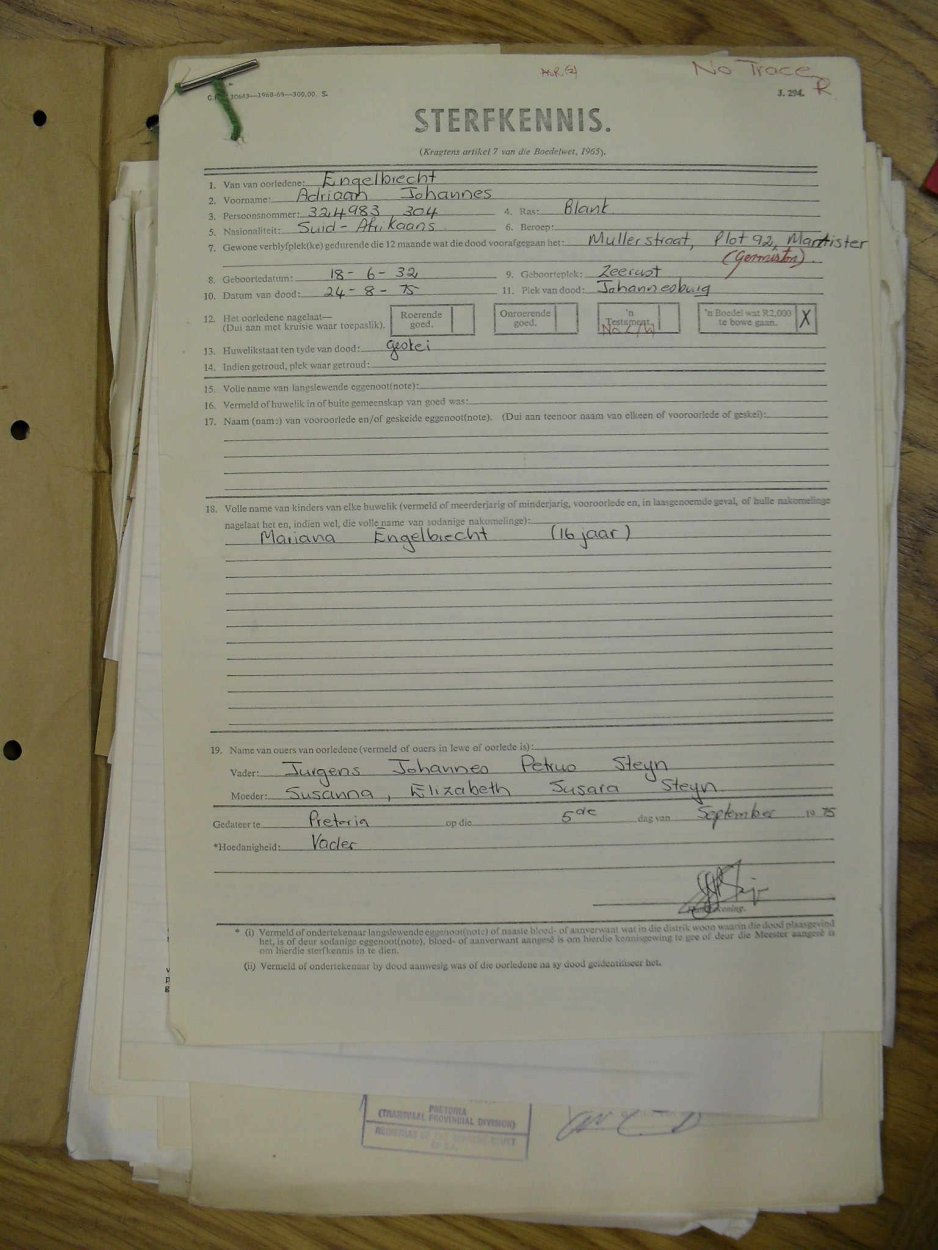 No Trace
R
30643—1968-69—300,00. S.
J. 294.
STERFKENNIS.
(Kragtens artikel 7 van die Boedelwet, 1965).
1. Van van oorledene: Engelbrecht
2. Voorname: Adriaan Johannes
3. Persoonsnommer: 324983 304 4. Ras: Blank
5. Nasionaliteit: Suid-Afrikaans 6. Beroep:
7. Gewone verblyfplek(ke) gedurende die 12 maande wat die dood voorafgegaan het: Mullerstraat, Plot 92,
(Germiston).
8. Geboortedatum: 18-6-32 9. Geboorteplek: Zeerust
10. Datum van dood: 24-8-75 11. Plek van dood: Johannesburg
12. Het oorledene nagelaat— (Dui aan met kruisie waar toepaslik). Roerende goed. Onroerende goed. 'n Testament. 'n Boedel wat R2,000 te bowe gaan. X
13. Huwelikstaat ten tyde van dood: geskei
14. Indien getroud, plek waar getroud:
15. Volle name van langslewende eggenoot(note):
16. Vermeld of huwelik in of buite gemeenskap van goed was:
17. Naam (name) van vooroorlede en/of geskeide eggenoot(note). (Dui aan teenoor naam van elkeen of vooroorlede of geskei):
18. Volle name van kinders van elke huwelik (vermeld of meerderjarig of minderjarig, vooroorlede en, in laasgenoemde geval, of hulle nakomelinge
nagelaat het en, indien wel, die volle name van sodanige nakomelinge):
Mariana Engelbrecht (16 jaar)
19. Name van ouers van oorledene (vermeld of ouers in lewe of oorlede is):
Vader: Jurgens Johannes Petrus Steyn
Moeder: Susanna, Elizabeth Susara Steyn
Gedateer te Pretoria op die 5de dag van September 19 75
*Hoedanigheid: Vader
* (i) Vermeld of ondertekenaar langslewende eggenoot(note) of naaste bloed- of aanverwant wat in die distrik woon waarin die dood plaasgevind
het, is of deur sodanige eggenoot(note), bloed- of aanverwant aangesê is om hierdie kennisgewing te gee of deur die Meester aangesê is
om hierdie sterfkennis in te dien.
(ii) Vermeld of ondertekenaar by dood aanwesig was of die oorledene na sy dood geïdentifiseer het.
PRETORIA
(TRANSVAAL PROVINCIAL DIVISION)